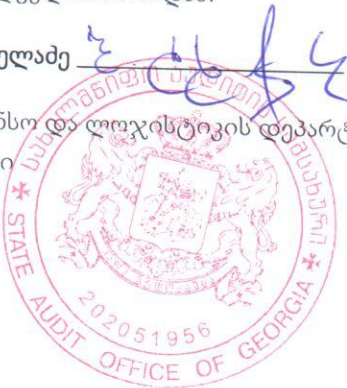 ელაძე
ნსო და ლოჯისტიკის დეპარტ
ი
სახელმწიფო აუდიტის სამსახური
STATE AUDIT OFFICE OF GEORGIA
202051956